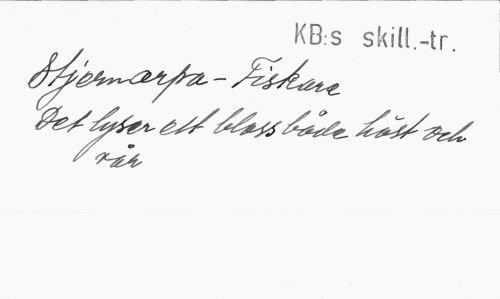 KB:s skill.-tr.
Stjernarpa - Fiskare
Det lyser ett bloss både höst och
vår